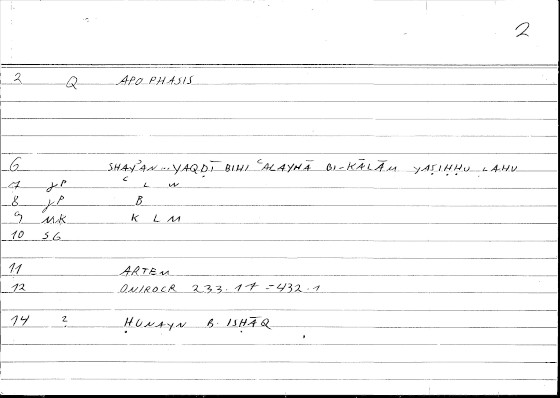 2
2 Q APOPHASIS
6 SHAYʾAN...YAQḌĪ BIHI ʿALAYHĀ BI-KĀLĀM YAṢIḤḤU LAHU
7 JP ʿ L W
8 JP B
9 MK K L M
10 SG
11 ARTEM
12 ONIROCR 233.17 = 432.1
14 ? ḤUNAYN B. ISḤĀQ